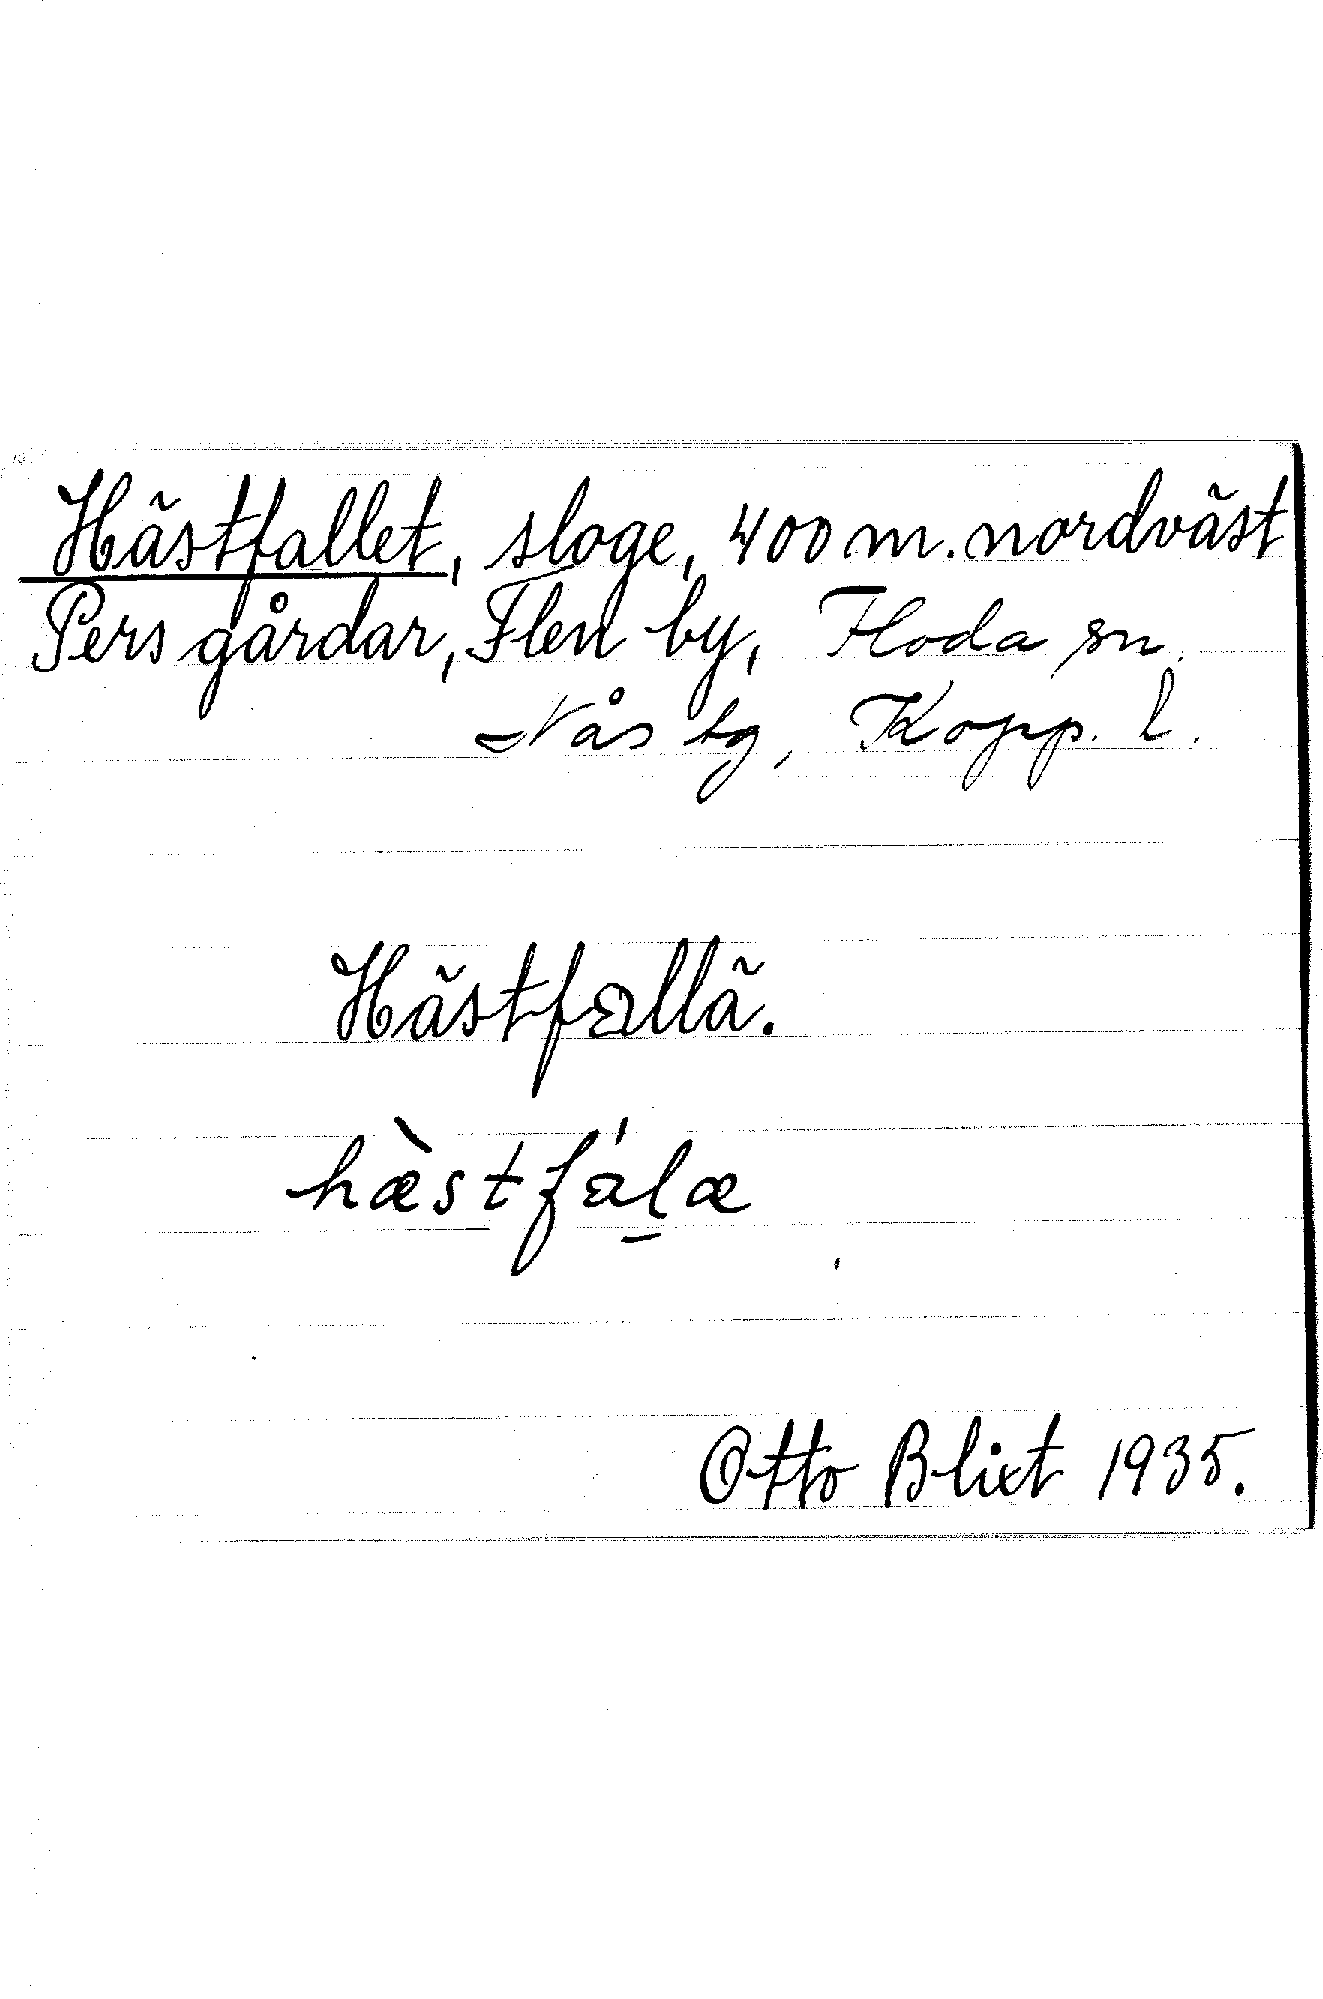 Hästfallet, sloge, 400 m. nordväst
Pers gårdar, Flen by, Floda sn.
Nås tg, Kopp. l.
Hästfallä.
hæ̀stfáḻæ
Otto Blixt 1935.